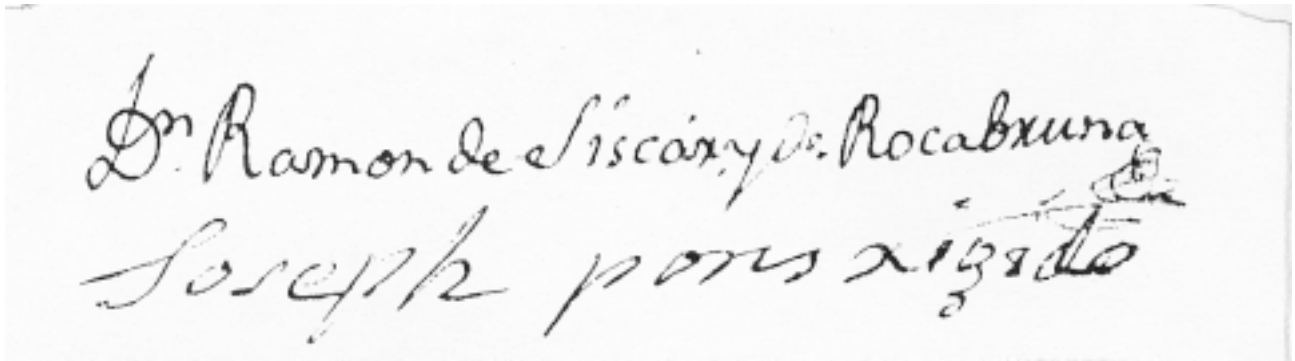 Dn. Ramon de Siscár, y de Rocabruna
Joseph pons